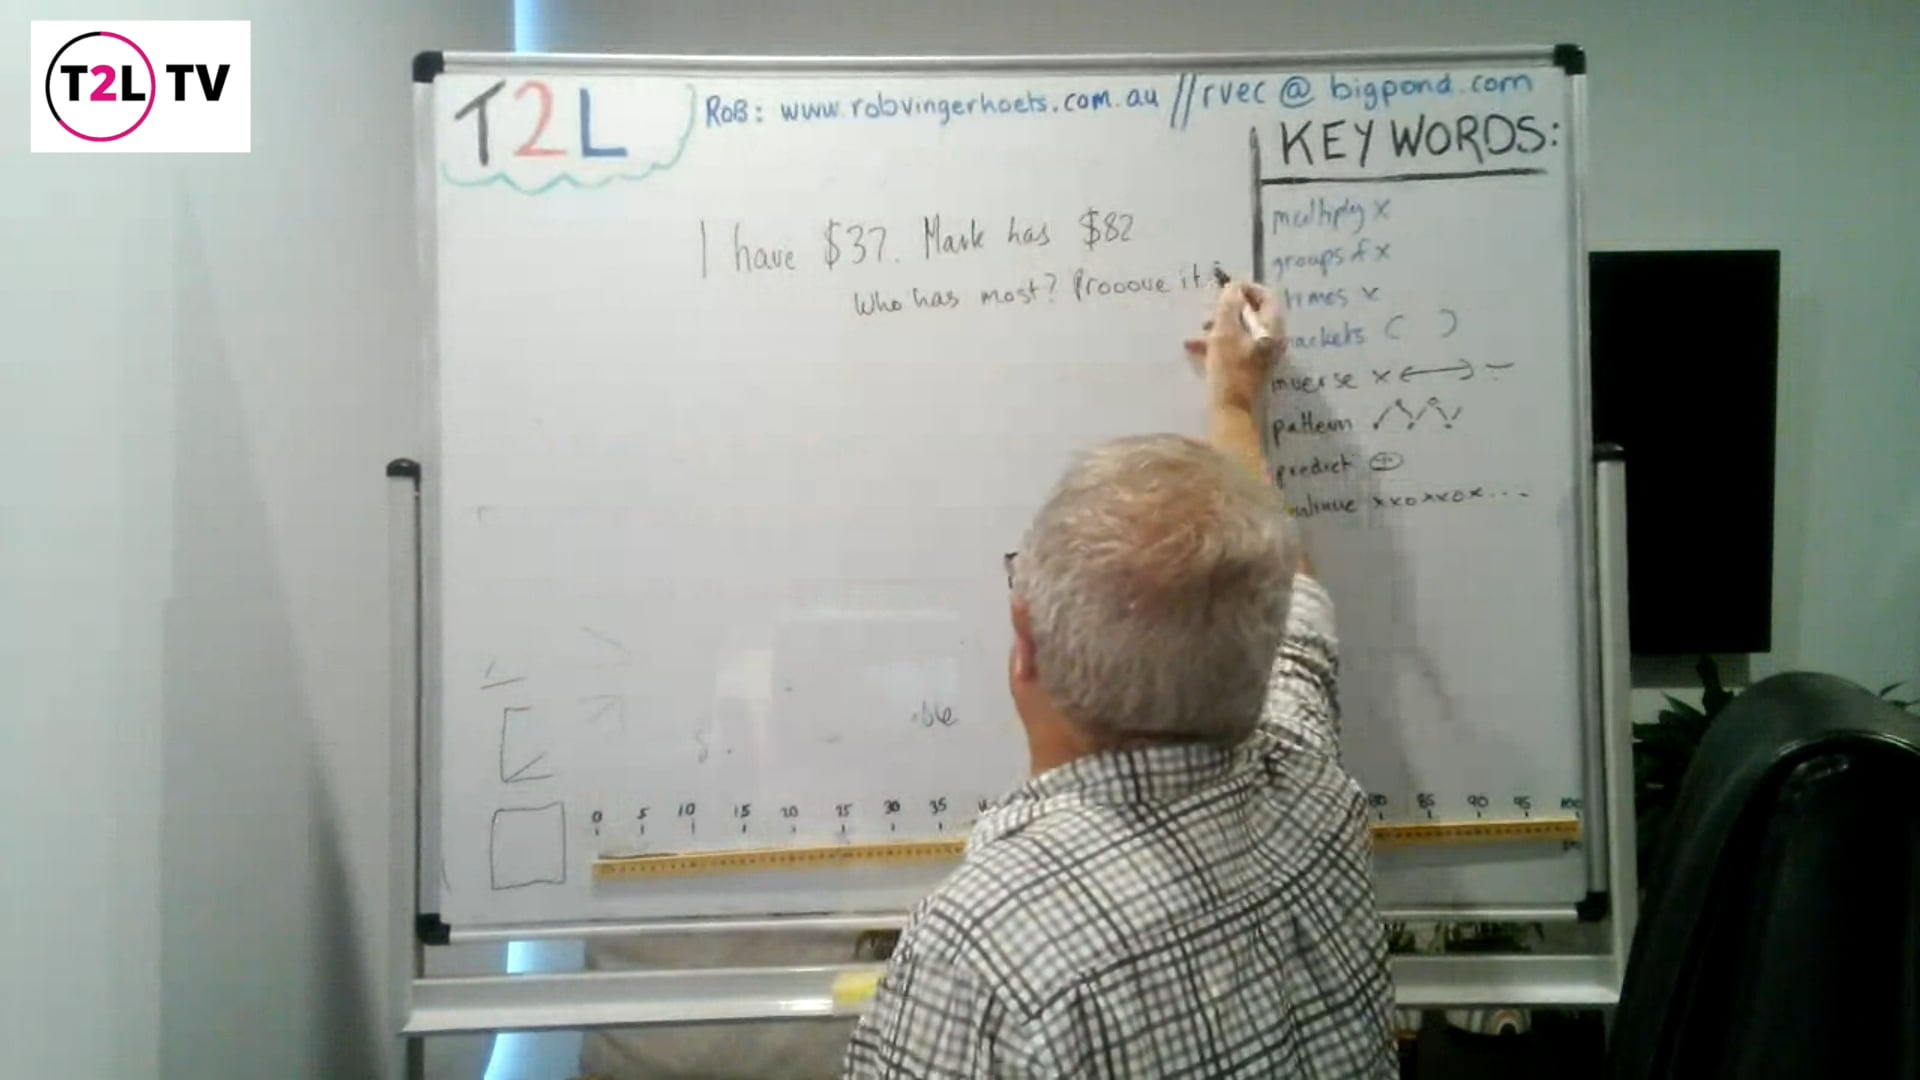 T2L TV
T2L
RoB: www.robvingerhoets.com.au // rvec @ bigpond.com
KEY WORDS:
I have $37. Mark has $82
Who has most? Prooove it
multiply x
groups of x
times x
brackets ( )
inverse x ⟷ ÷
pattern
predict
continue x x o x x o x . . .
0 5 10 15 20 25 30 35 80 85 90 95 100